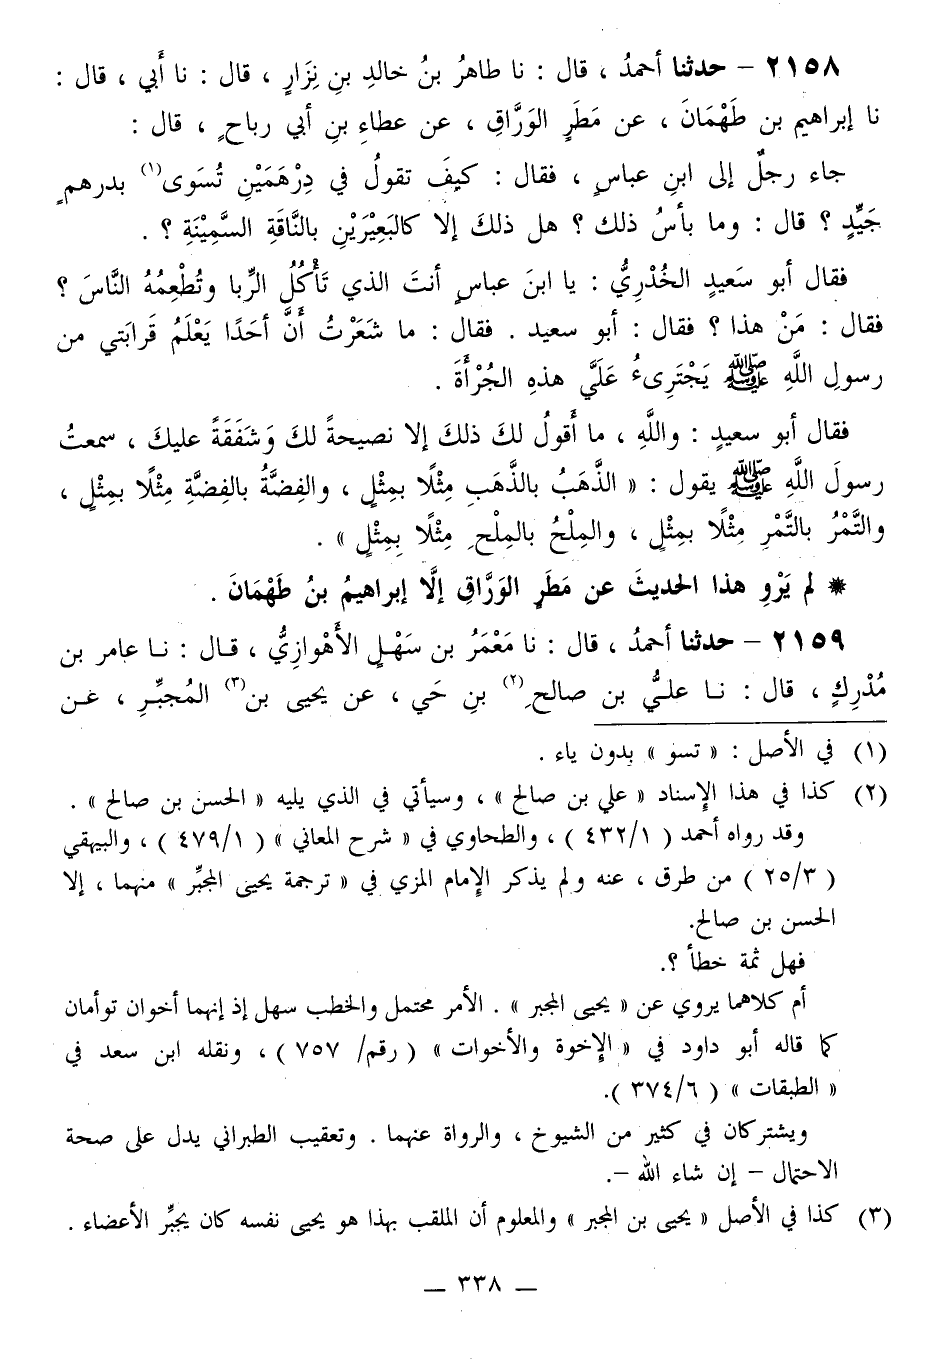 ٢١٥٨ – حدثنا أحمدُ ، قال : نا طاهرُ بنُ خالدِ بنِ نِزَارٍ ، قال : نا أَبي ، قال :
نا إبراهيم بن طَهْمَانَ ، عن مَطَرٍ الوَرَّاقِ ، عن عطاءِ بنِ أبي رباحٍ ، قال :
جاء رجلٌ إلى ابنِ عباسٍ ، فقال : كيفَ تقولُ في دِرْهَمَيْنِ تُسَوى(١) بدرهمٍ
جَيِّدٍ ؟ قال : وما بأسُ ذلك ؟ هل ذلكَ إلا كالبَعِيْرَيْنِ بالنَّاقَةِ السَّمِيْنَةِ ؟ .
فقال أبو سَعيدٍ الخُدْرِيُّ : يا ابنَ عباسٍ أنتَ الذي تَأْكُلُ الرِّبا وتُطْعِمُهُ النَّاسَ ؟
فقال : مَنْ هذا ؟ فقال : أبو سعيد . فقال : ما شَعَرْتُ أَنَّ أحَدًا يَعْلَمُ قَرابَتي من
رسولِ اللَّهِ ﷺ يَجْتَرِىءُ عَلَيَّ هذهِ الجُرْأَةَ .
فقال أبو سعيدٍ : واللَّهِ ، ما أَقولُ لكَ ذلكَ إلا نصيحةً لكَ وَشَفَقَةً عليكَ ، سمعتُ
رسولَ اللَّهِ ﷺ يقول : « الذَّهَبُ بالذَّهَبِ مِثْلًا بمِثْلٍ ، والفِضَّةُ بالفِضَّةِ مِثْلًا بمِثْلٍ ،
والتَّمْرُ بالتَّمْرِ مِثْلًا بمِثْلٍ ، والمِلْحُ بالمِلْحِ مِثْلًا بِمِثْلٍ » .
* لم يَرْوِ هذا الحديثَ عن مَطَرٍ الوَرَّاقِ إلَّا إبراهيمُ بنُ طَهْمَانَ .
٢١٥٩ – حدثنا أحمدُ ، قال : نا مَعْمَرُ بن سَهْلٍ الأَهْوازِيُّ ، قال : نا عامر بن
مُدْرِكٍ ، قال : نا عليُّ بن صالحِ(٢) بنِ حَي ، عن يحيى بن(٣) المُجبِّرِ ، عن
(١) في الأصل : « تسو » بدون ياء .
(٢) كذا في هذا الإسناد « علي بن صالح » ، وسيأتي في الذي يليه « الحسن بن صالح » .
وقد رواه أحمد ( ٤٣٢/١ ) ، والطحاوي في « شرح المعاني » ( ٤٧٩/١ ) ، والبيهقي
( ٢٥/٣ ) من طرق ، عنه ولم يذكر الإمام المزي في « ترجمة يحيى المجبِّر » منهما ، إلا
الحسن بن صالح.
فهل ثمة خطأ ؟.
أم كلاهما يروي عن « يحيى المجبر » . الأمر محتمل والخطب سهل إذ إنهما أخوان توأمان
كما قاله أبو داود في « الإخوة والأخوات » ( رقم/ ٧٥٧ ) ، ونقله ابن سعد في
« الطبقات » ( ٣٧٤/٦ ).
ويشتركان في كثير من الشيوخ ، والرواة عنهما . وتعقيب الطبراني يدل على صحة
الاحتمال – إن شاء الله –.
(٣) كذا في الأصل « يحيى بن المجبر » والمعلوم أن الملقب بهذا هو يحيى نفسه كان يجبِّر الأعضاء .
– ٣٣٨ –